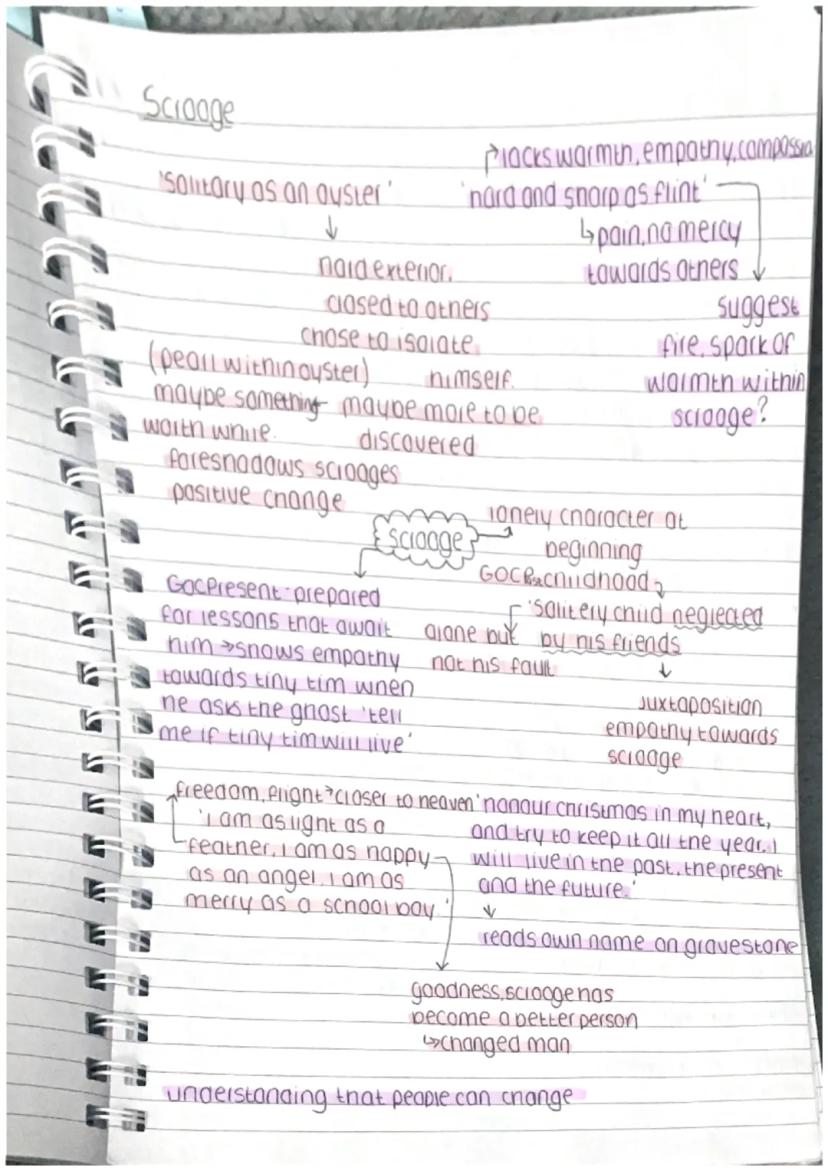 Scrooge
'solitary as an oyster'
hard exterior.
closed to others
chose to isolate
himself.
(pearl within oyster)
maybe something
worth while.
maybe more to be
discovered
foreshadows scrooges
positive change
lacks warmth, empathy, compassion
'hard and sharp as flint'
↳pain, no mercy
towards others
suggest
fire, spark of
warmth within
scrooge?
scrooge
lonely character at
beginning
GOCPast childhood
'solitery child neglected
by his friends
alone but
not his fault
juxtaposition
empathy towards
scrooge
GOCPresent-prepared
for lessons that await
him →shows empathy
towards tiny tim when
he asks the ghost 'tell
me if tiny tim will live'
freedom, flight→closer to heaven
'i am as light as a
feather, i am as happy
as an angel, i am as
merry as a school boy.'
'honour christmas in my heart,
and try to keep it all the year. i
will live in the past, the present
and the future.'
reads own name on gravestone
goodness, scrooge has
become a better person
↳changed man
understanding that people can change